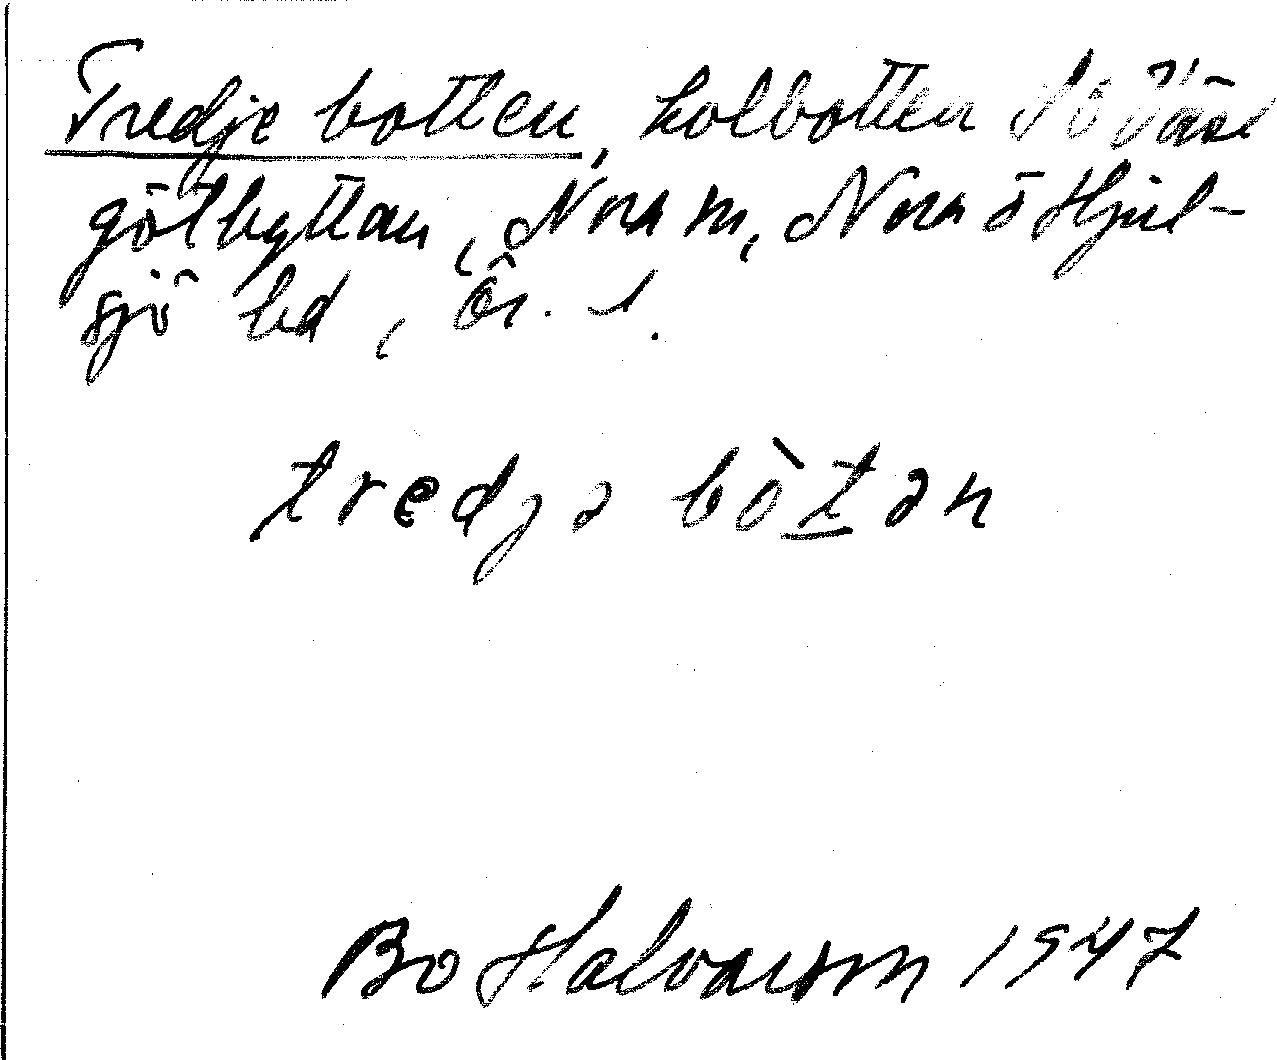 Tredje botten, kolbotten SÖ
götbyttan, Nora m, Nora o Hjul-
sjö hd, Ör. l.
tredjə bòt̲ən
Bo Halvarson 1947